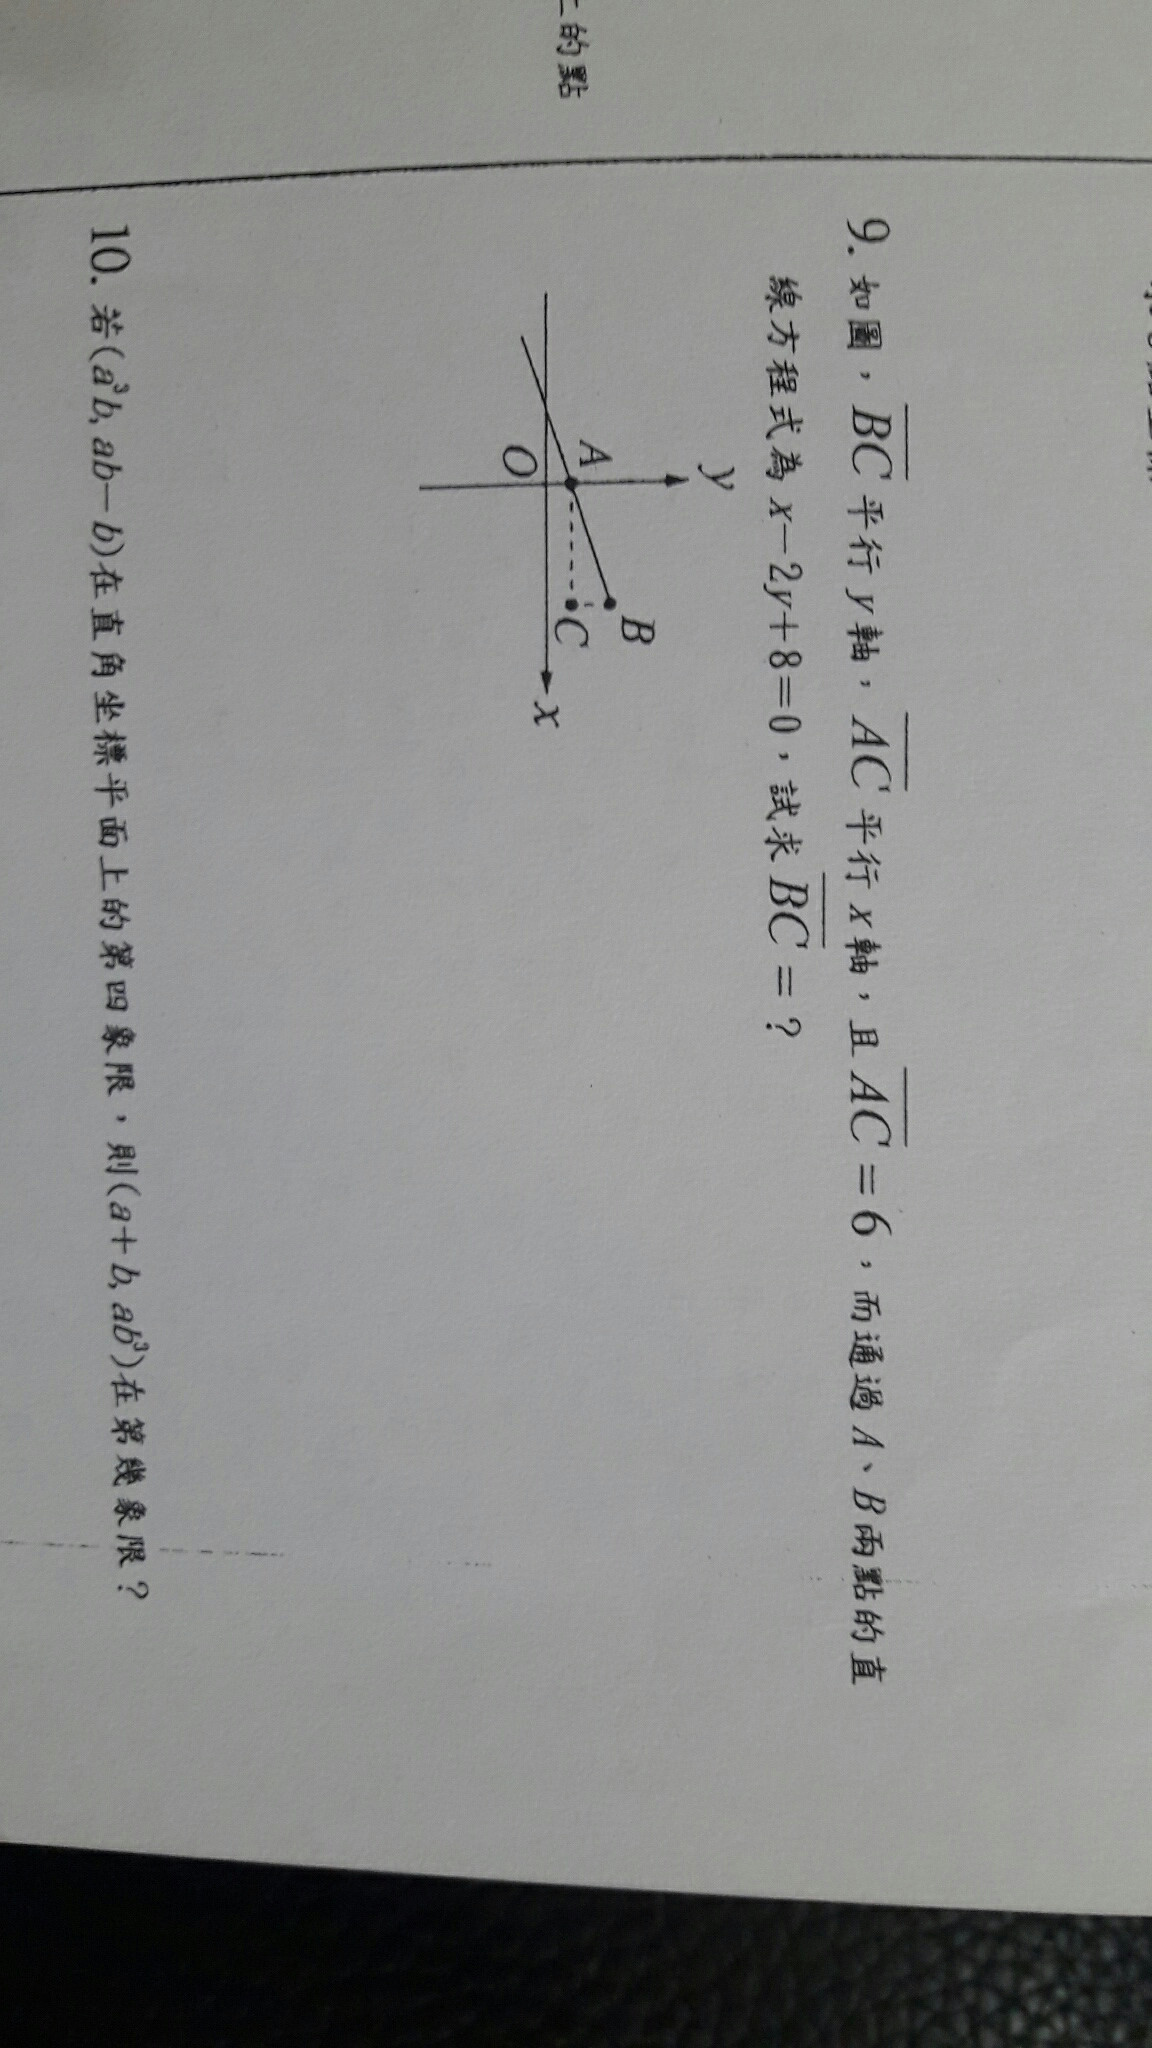 上的點
9. 如圖，BC 平行 y 軸，AC 平行 x 軸，且 AC = 6，而通過 A、B 兩點的直
線方程式為 x－2y＋8＝0，試求 BC = ?
y
A
B
C
O
x
10. 若(a³b, ab－b)在直角坐標平面上的第四象限，則(a＋b, ab³)在第幾象限？